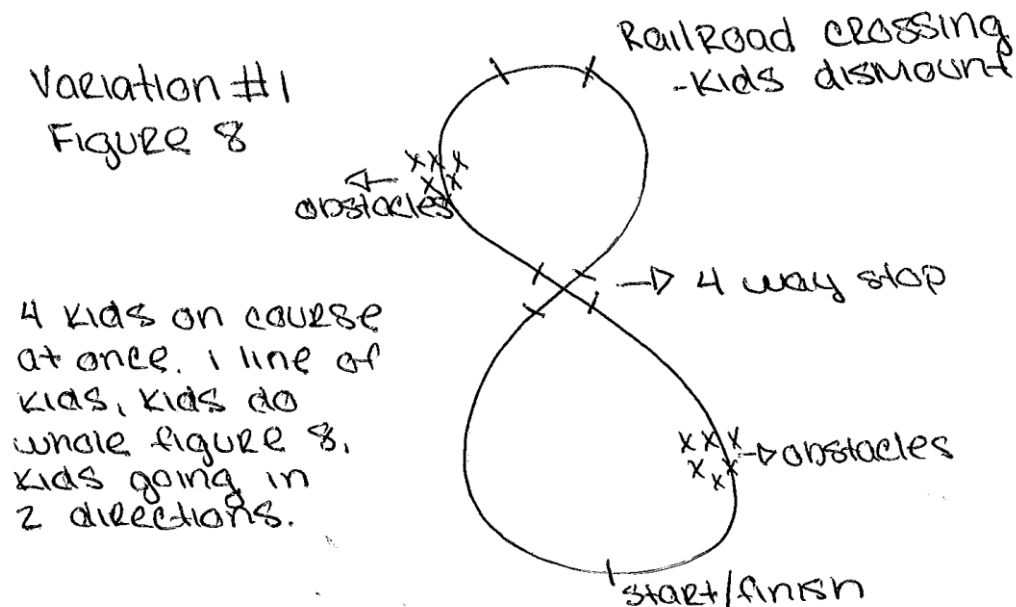 Variation #1
Figure 8
Railroad crossing
-Kids dismount
obstacles
4 way stop
4 kids on course
at once. 1 line of
kids, kids do
whole figure 8.
kids going in
2 directions.
obstacles
start/finish